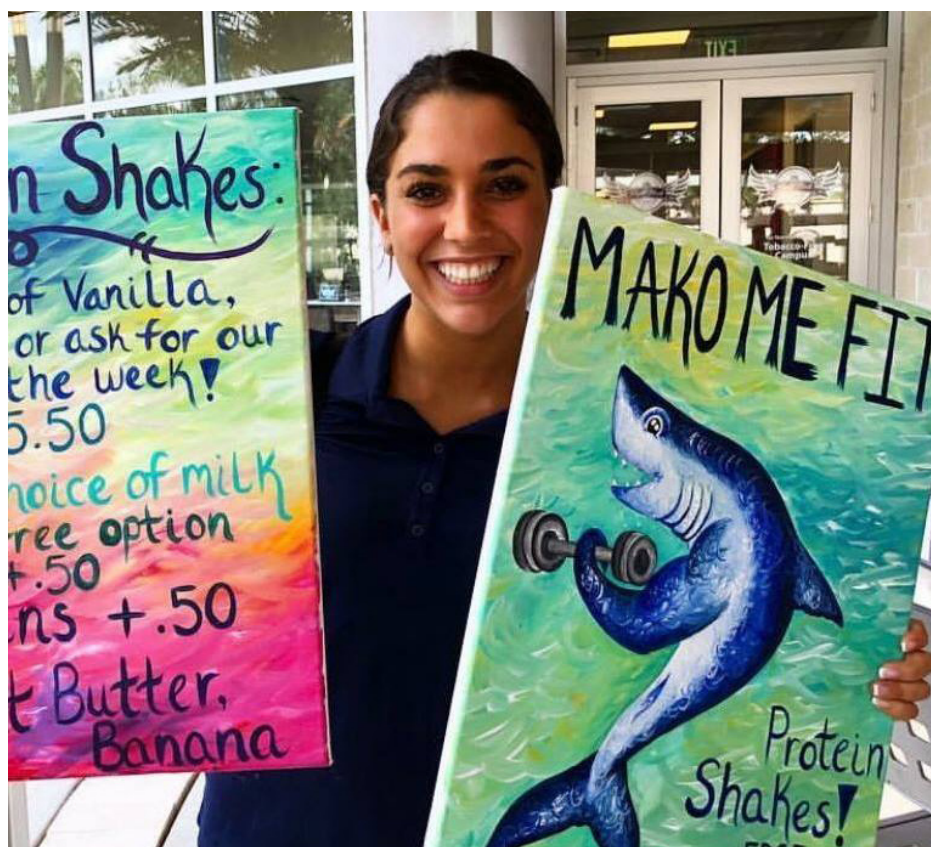 n Shakes:
of Vanilla,
or ask for our
the week!
5.50
hoice of milk
ree option
+.50
ns +.50
t Butter,
Banana
MAKO ME FIT
Protein
Shakes!
EXIT
Tobacco-Free
Campus